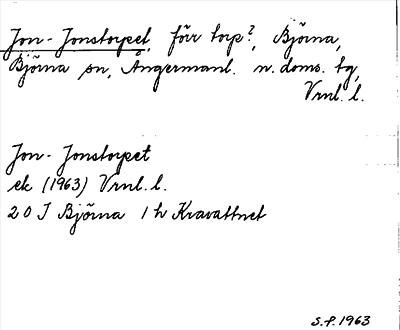 Jon-Jonstorpet, förr torp?, Björna,
Björna sn, Ångermanl. n. doms. tg,
Vrnl. l.
Jon-Jonstorpet
ek (1963) Vrnl. l.
20 J Björna 1 h Kravattnet
S.F. 1963